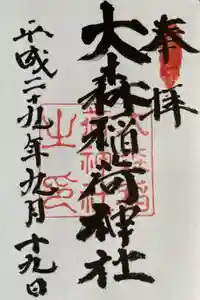 奉拝
大森稲荷神社
平成二十九年九月十九日